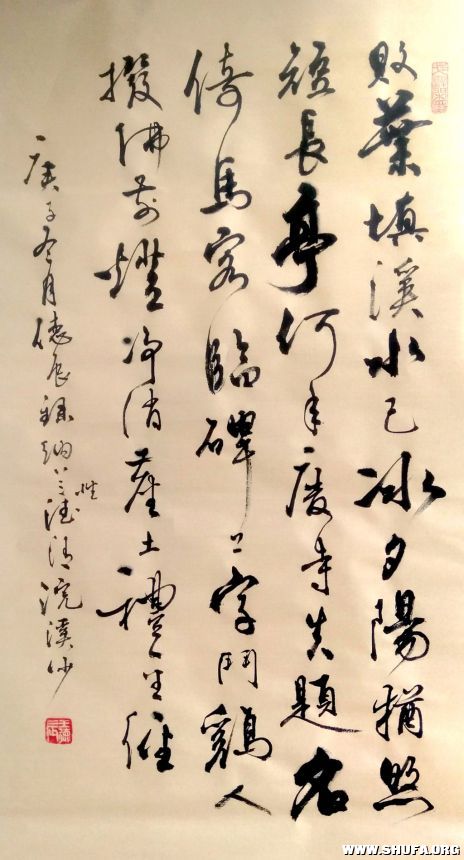 敗葉填溪水已冰夕陽猶照
短長亭何年廢寺失題名
倚馬客臨碑上字鬥鷄人
撥佛前燈净消塵土禮金經
庚子冬月德辰録納兰性德浣溪沙
WWW.SHUFA.ORG